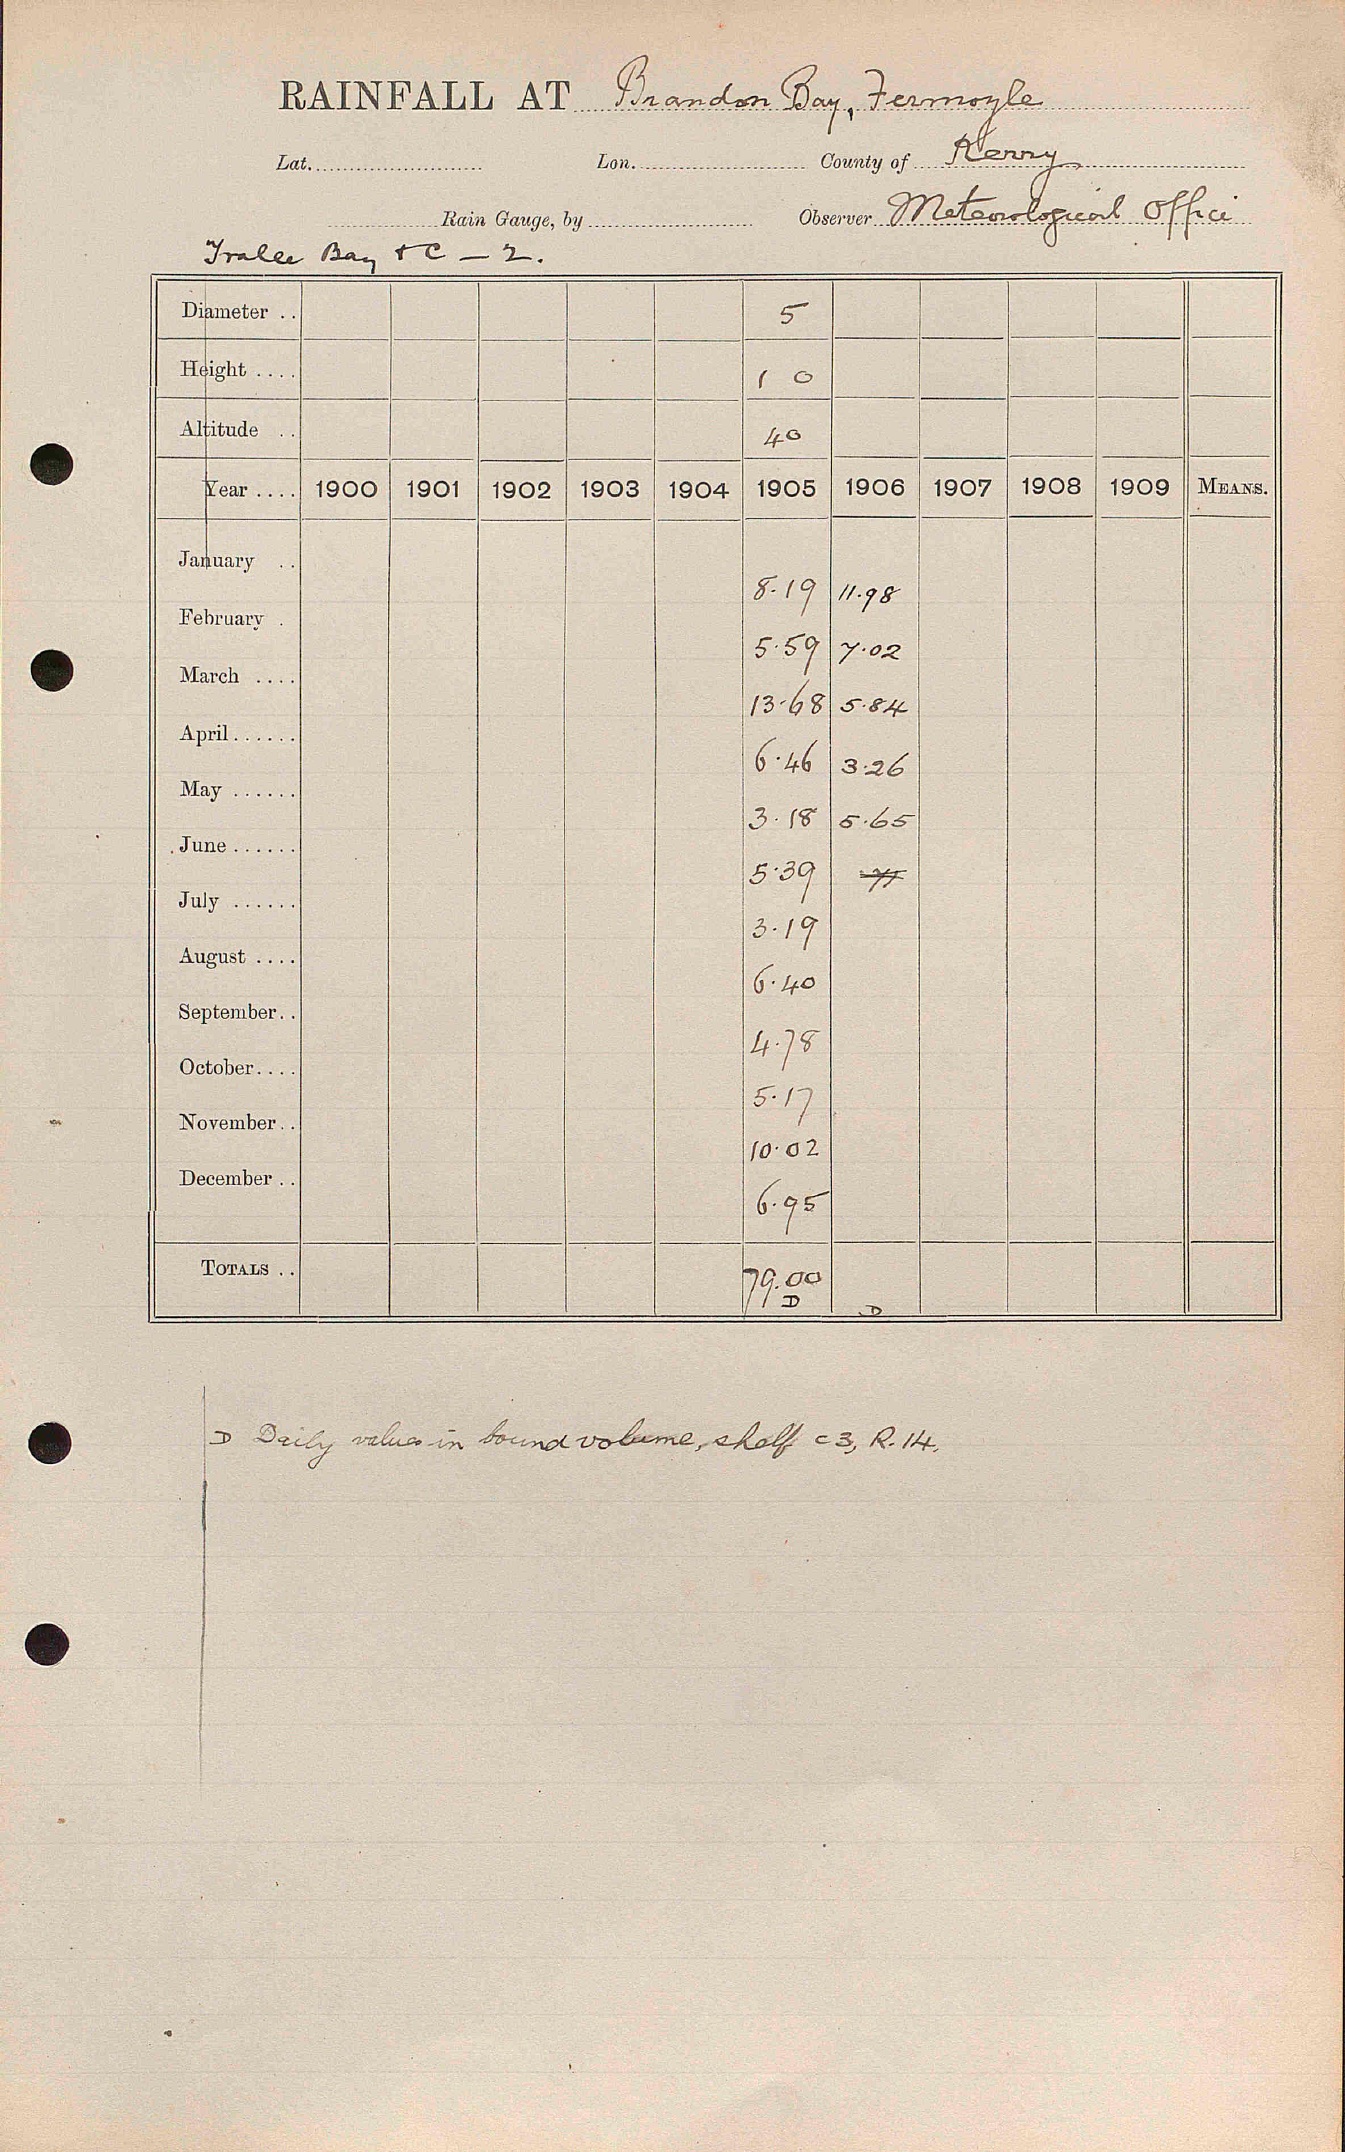 RAINFALL AT Brandon Bay, Fermoyle
Lat. Lon. County of Kerry
Rain Gauge, by Observer Meteorological Office
Tralee Bay & C — 2.
Diameter .. 5
Height .... 1 0
Altitude .. 40
Year .... 1900 1901 1902 1903 1904 1905 1906 1907 1908 1909 MEANS.
January .. 8.19 11.98
February . 5.59 7.02
March .... 13.68 5.84
April...... 6.46 3.26
May ...... 3.18 5.65
June ...... 5.39
July ...... 3.19
August .... 6.40
September.. 4.78
October.... 5.17
November.. 10.02
December .. 6.95
TOTALS .. 79.00
D D
D Daily values in bound volume, shelf c3, R.14.